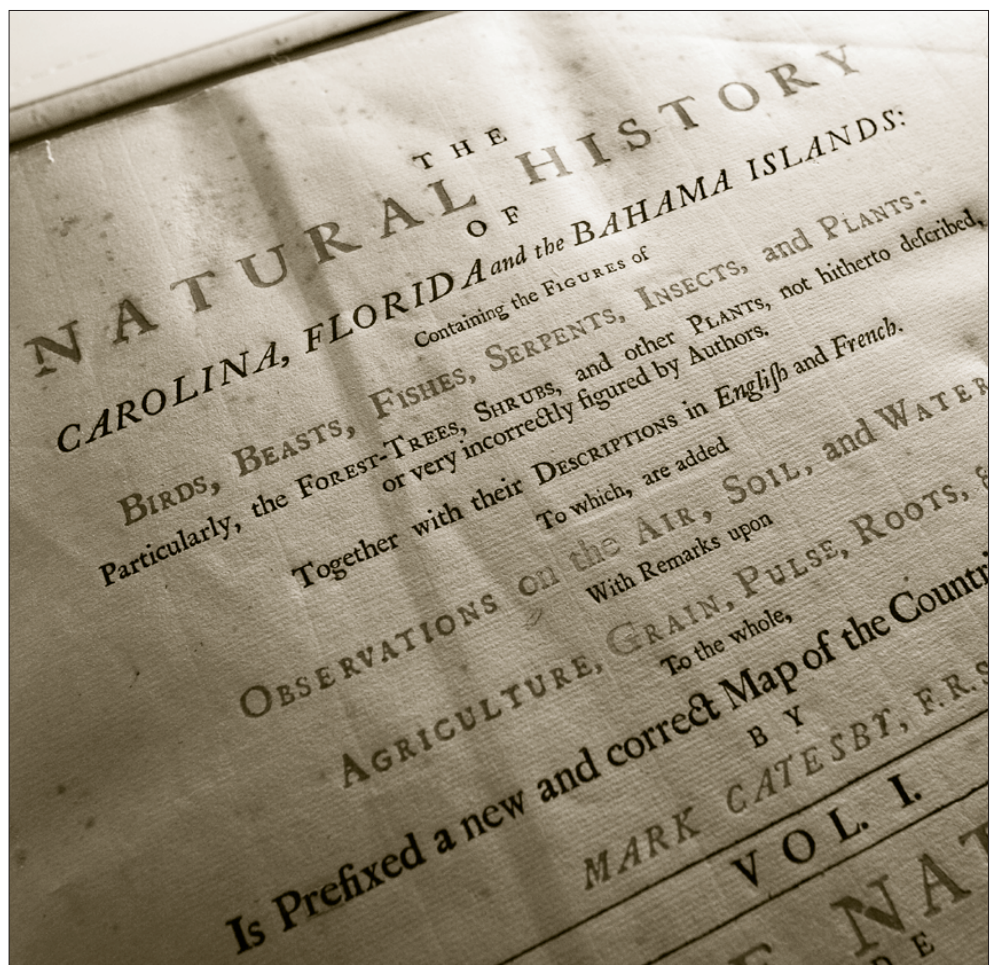 THE
NATURAL HISTORY
OF
CAROLINA, FLORIDA and the BAHAMA ISLANDS:
Containing the FIGURES of
BIRDS, BEASTS, FISHES, SERPENTS, INSECTS, and PLANTS:
Particularly, the FOREST-TREES, SHRUBS, and other PLANTS, not hitherto deſcribed,
or very incorrectly figured by Authors.
Together with their DESCRIPTIONS in Engliſh and French.
To which, are added
OBSERVATIONS on the AIR, SOIL, and WATER
With Remarks upon
AGRICULTURE, GRAIN, PULSE, ROOTS, &
To the whole,
Is Prefixed a new and correct Map of the Countri
BY
MARK CATESBY, F.R.S
VOL. I.
NAT
DE